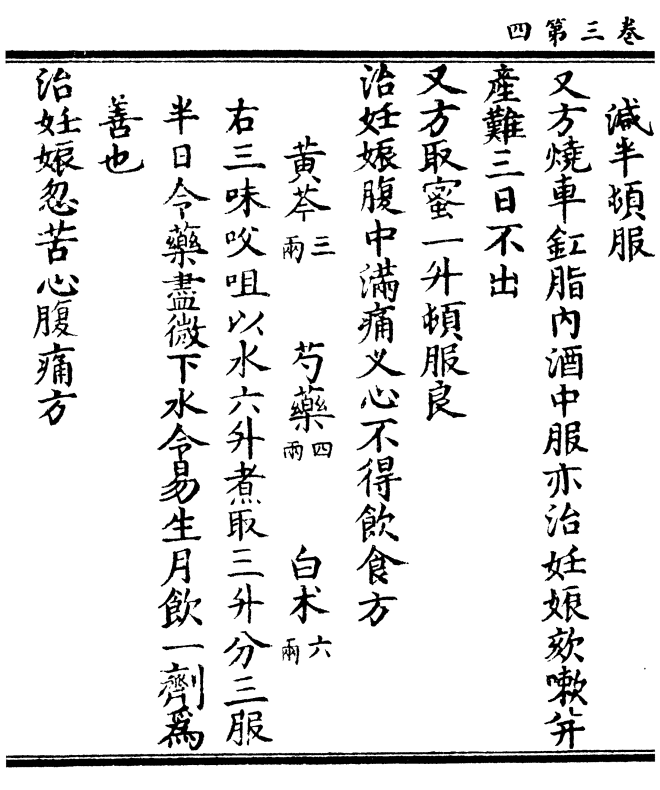 卷三第四
減半頓服
又方燒車釭脂內酒中服亦治妊娠欬嗽并
產難三日不出
又方取蜜一升頓服良
治妊娠腹中滿痛叉心不得飲食方
黃芩三兩 芍藥四兩 白朮六兩
右三味㕮咀以水六升煮取三升分三服
半日令藥盡微下水令易生月飲一劑為
善也
治妊娠忽苦心腹痛方